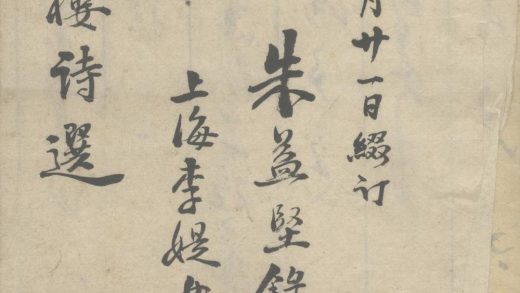 月廿一日綴订
朱益堅
上海李媞
樓诗選